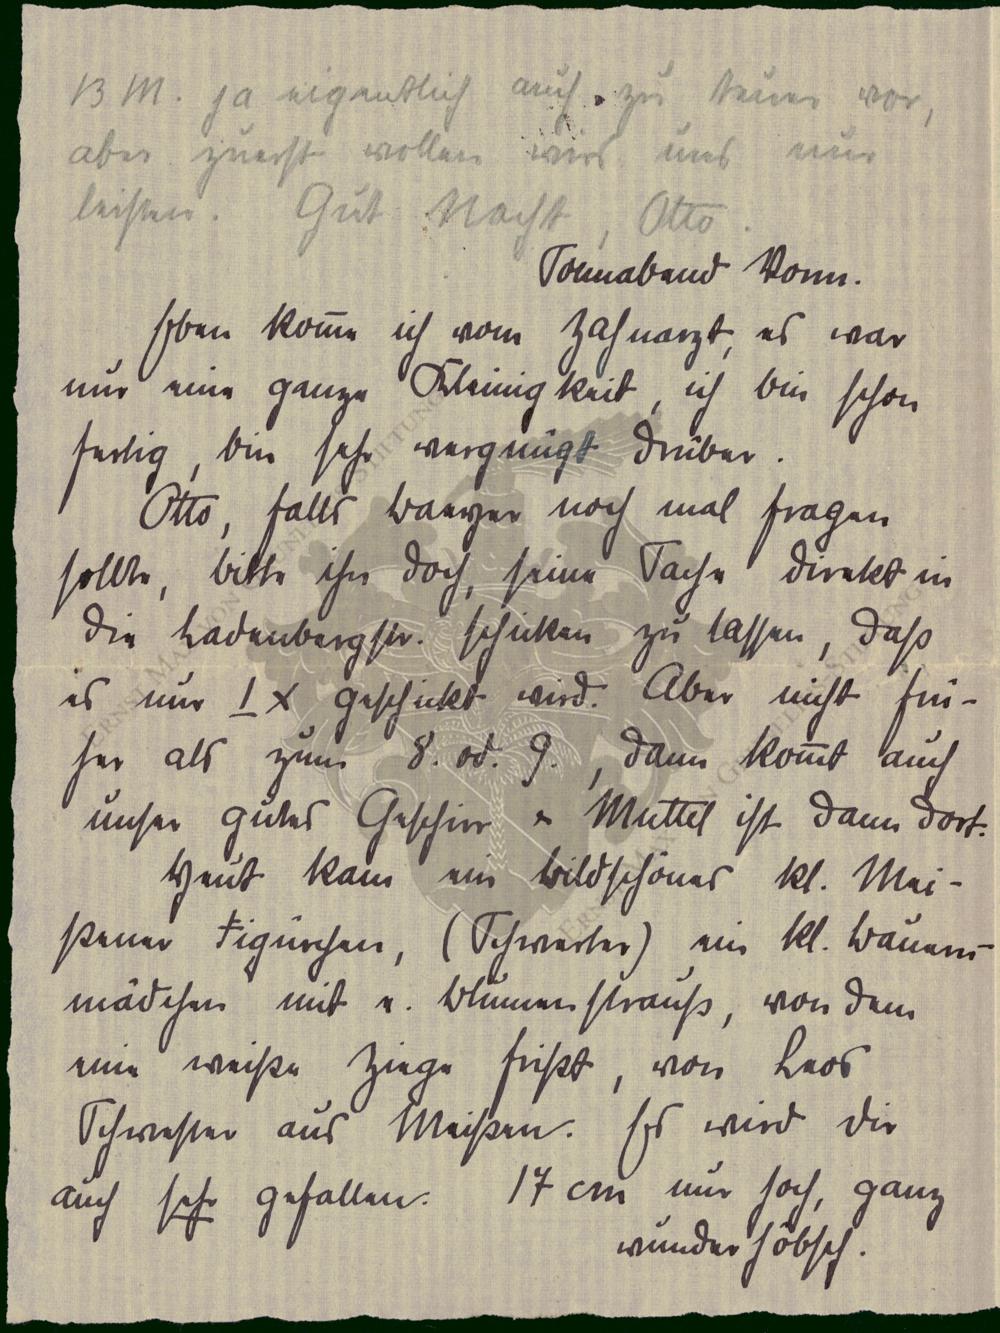 13 M. ja eigentlich auch zu teuer vor,
aber zuerst wollen wirs uns nur
leisten. Gut Nacht, Otto.
Sonnabend Vorm.
Eben kom̅e ich vom Zahnarzt, es war
nur eine ganze Kleinigkeit, ich bin schon
fertig, bin sehr vergnügt drüber.
Otto, falls Baeyer noch mal fragen
sollte, bitte ihn doch, seine Sache direkt in
die Ladenbergstr. schicken zu lassen, daß
es nur 1 X geschickt wird. Aber nicht frü-
her als zum 8. od. 9., dann kom̅t auch
unser gutes Geschirr & Muttel ist dann dort.
Heut kam ein bildschönes kl. Mei-
ßener Figürchen, (Schwerter) ein kl. Bauern-
mädchen mit e. Blumenstrauß, von dem
eine weiße Ziege frißt, von Leos
Schwester aus Meißen. Es wird dir
auch sehr gefallen. 17 cm nur hoch, ganz
wunderhübsch.
ERNST MAX VON GRUNELIUS-STIFTUNG
ERNST MAX VON GRUNELIUS-STIFTUNG